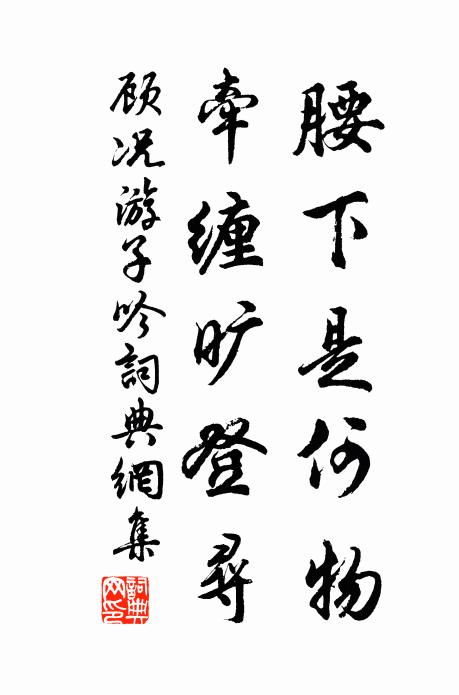 腰下是何物
牵缠旷登寻
顾况游子吟詞典網集
詞典網印